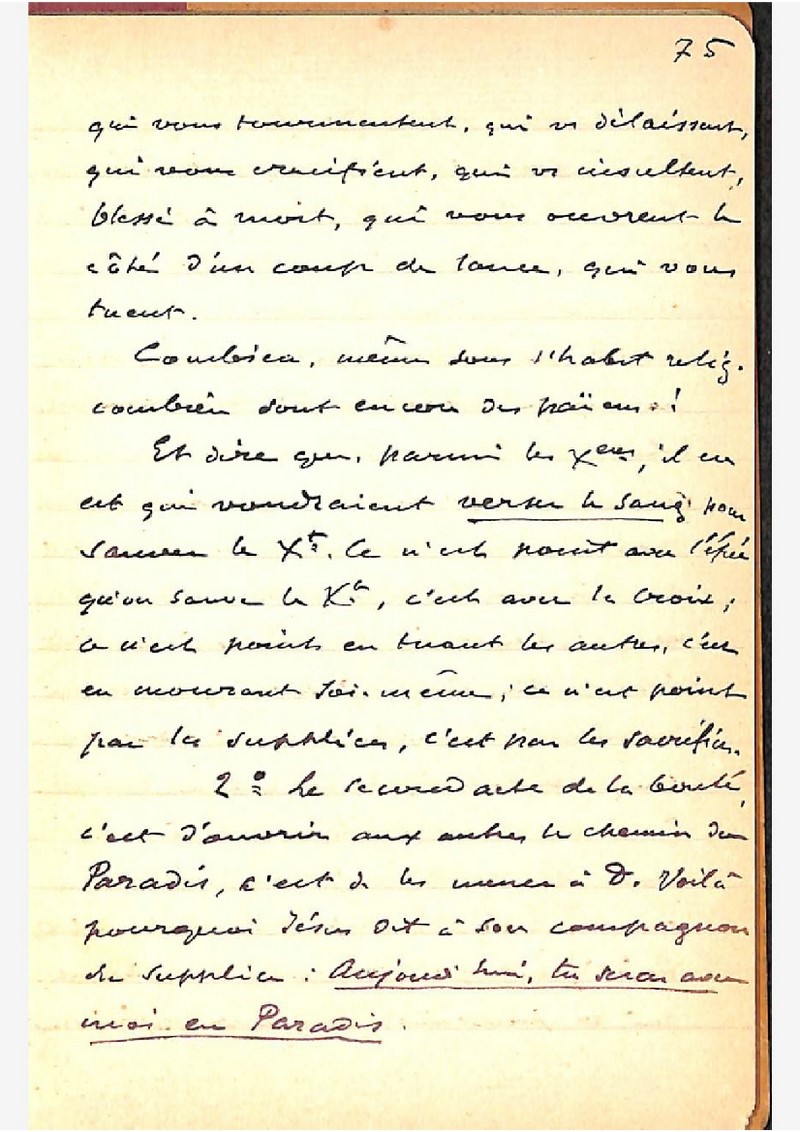 75
qui vous tourmentent, qui vs délaissent,
qui vous crucifient, qui vs insultent,
blessé à mort, qui vous ouvrent le
côté d'un coup de lance, qui vous
tuent.
Combien, même sous l'habit relig.
combien sont encore des païens !
Et dire que, parmi les Xens, il en
est qui voudraient verser le sang pour
sauver le Xt. Ce n'est point avec l'épée
qu'on sauve le Xt, c'est avec la Croix ;
ce n'est point en tuant les autres, c'est
en mourant soi-même ; ce n'est point
par les supplices, c'est par les sacrifices.
2° Le second acte de la bonté,
c'est d'ouvrir aux autres le chemin du
Paradis, c'est de les mener à D. Voilà
pourquoi Jésus dit à son compagnon
de supplice : Aujourd'hui, tu seras avec
moi en Paradis.